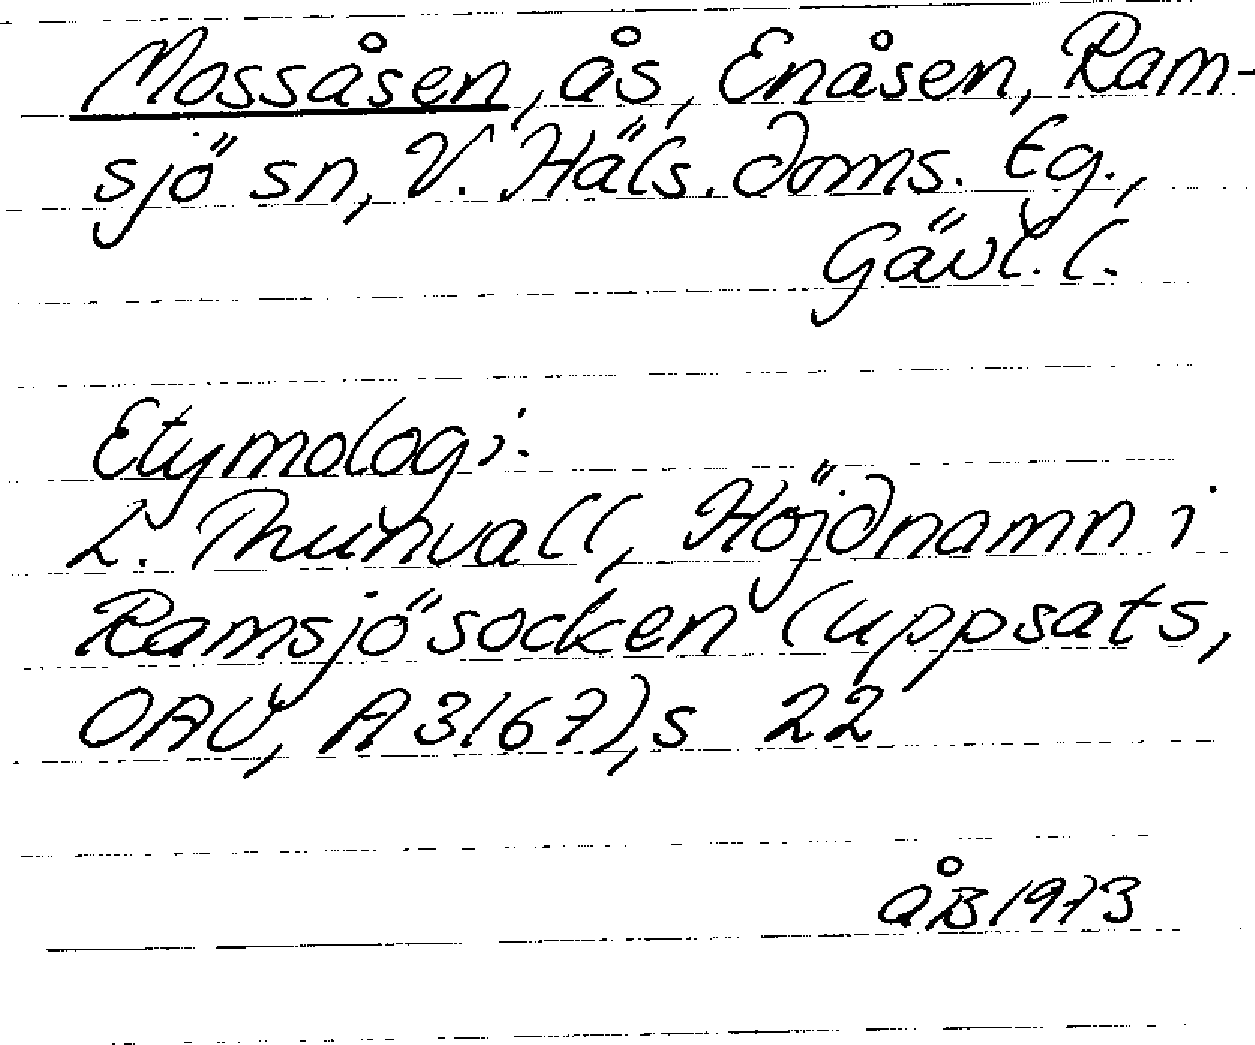 Mossåsen, ås, Enåsen, Ram-
sjö sn, V. Häls. doms. tg.,
Gävl. l.
Etymologi:
L. Thunvall, Höjdnamn i
Ramsjö socken (uppsats,
OAU, A3167), s 22
ÅB 1973